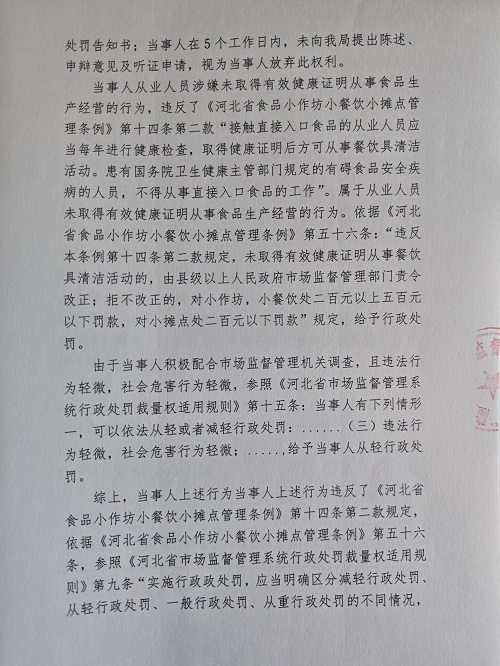 处罚告知书；当事人在5个工作日内，未向我局提出陈述、
申辩意见及听证申请，视为当事人放弃此权利。
当事人从业人员涉嫌未取得有效健康证明从事食品生
产经营的行为，违反了《河北省食品小作坊小餐饮小摊点管
理条例》第十四条第二款“接触直接入口食品的从业人员应
当每年进行健康检查，取得健康证明后方可从事餐饮具清洁
活动。患有国务院卫生健康主管部门规定的有碍食品安全疾
病的人员，不得从事直接入口食品的工作”。属于从业人员
未取得有效健康证明从事食品生产经营的行为。依据《河北
省食品小作坊小餐饮小摊点管理条例》第五十六条：“违反
本条例第十四条第二款规定，未取得有效健康证明从事餐饮
具清洁活动的，由县级以上人民政府市场监督管理部门责令
改正；拒不改正的，对小作坊，小餐饮处二百元以上五百元
以下罚款，对小摊点处二百元以下罚款”规定，给予行政处
罚。
由于当事人积极配合市场监督管理机关调查，且违法行
为轻微，社会危害行为轻微，参照《河北省市场监督管理系
统行政处罚裁量权适用规则》第十五条：当事人有下列情形
一，可以依法从轻或者减轻行政处罚：......（三）违法行
为轻微，社会危害行为轻微；.....,给予当事人从轻行政处
罚。
综上，当事人上述行为当事人上述行为违反了《河北省
食品小作坊小餐饮小摊点管理条例》第十四条第二款规定，
依据《河北省食品小作坊小餐饮小摊点管理条例》第五十六
条，参照《河北省市场监督管理系统行政处罚裁量权适用规
则》第九条“实施行政政处罚，应当明确区分减轻行政处罚、
从轻行政处罚、一般行政处罚、从重行政处罚的不同情况，
监督